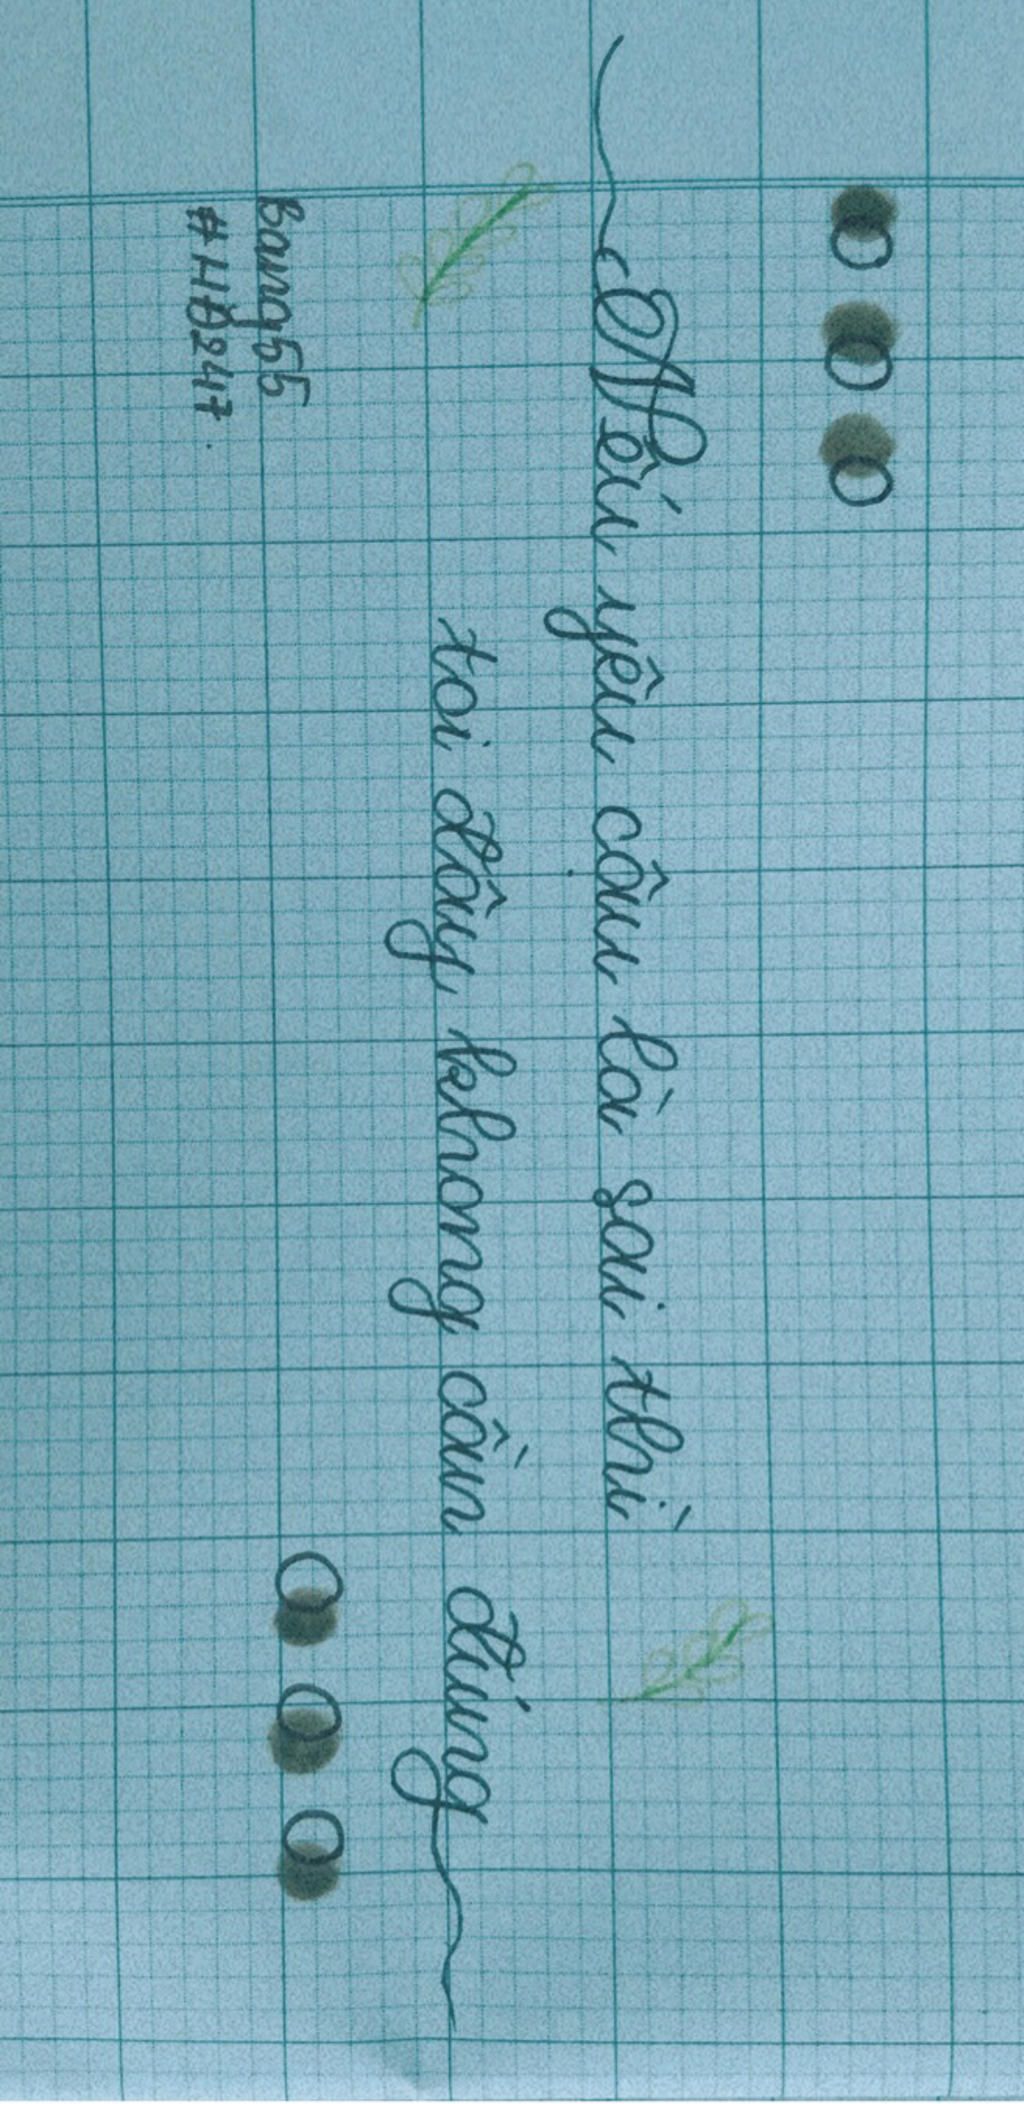 Nếu yêu câu là sai thì
toi đây khong cần đúng
Bang55
#HB247.